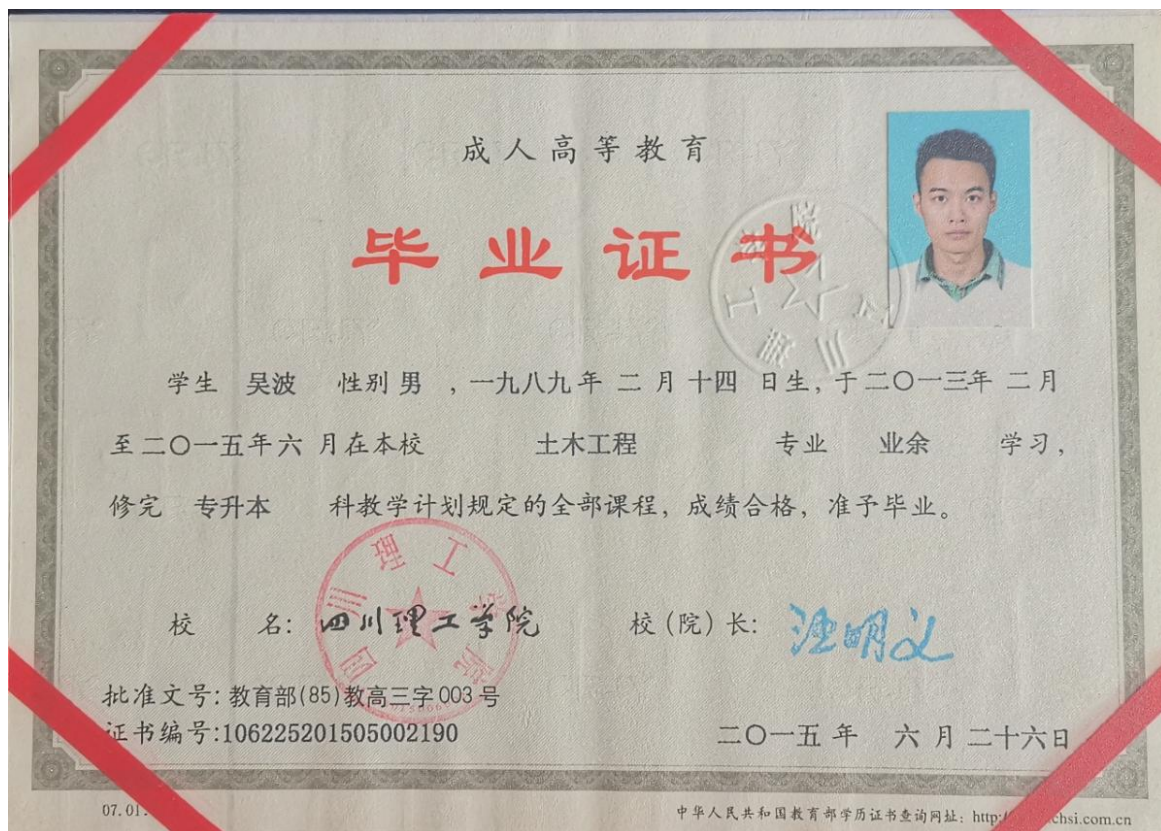 成人高等教育
毕业证书
学生 吴波 性别 男 ，一九八九年 二 月 十四 日生，于二〇一三年 二月
至二〇一五年六 月在本校 土木工程 专业 业余 学习，
修完 专升本 科教学计划规定的全部课程，成绩合格，准予毕业。
校 名：四川理工学院 校（院）长：
批准文号：教育部(85)教高三字003号
证书编号:106225201505002190
二〇一五年 六月二十六日
07.01.
中华人民共和国教育部学历证书查询网址：http:/ chsi.com.cn
四川理工学院
四川理工学院